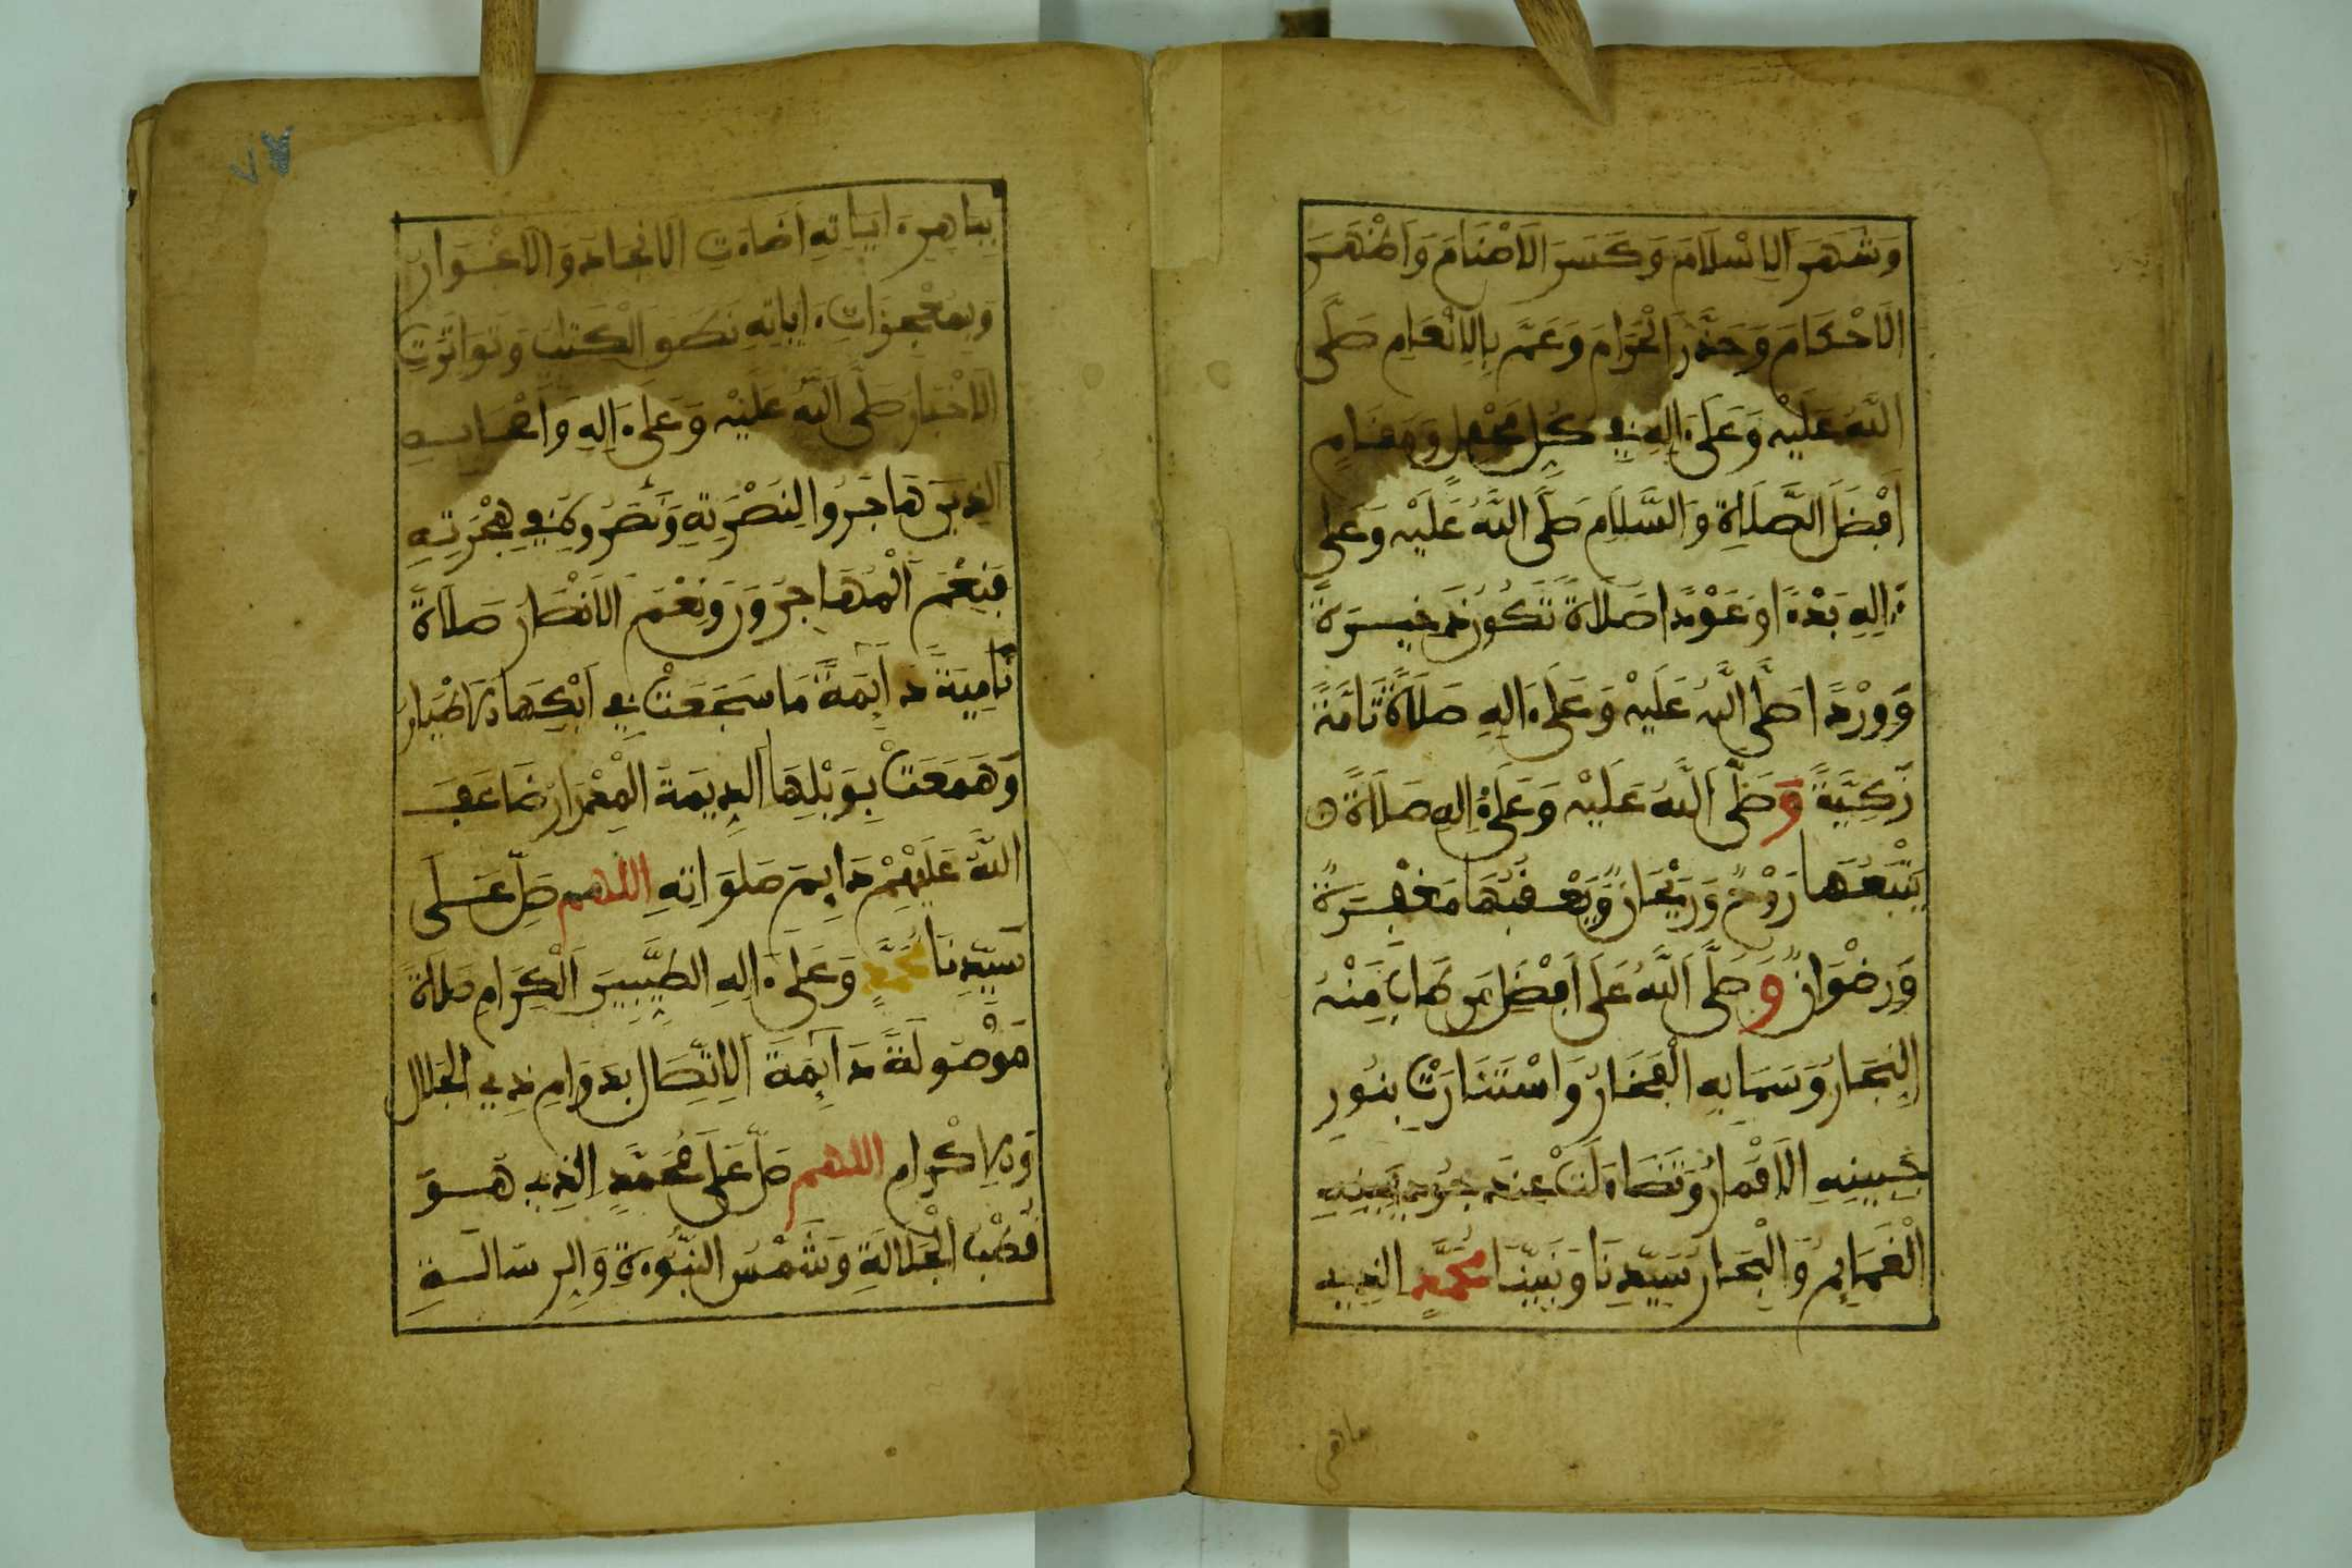 وَشَهَرَ الإِسْلَامَ وَكَسَرَ الأَصْنَامَ وَأَظْهَرَ
الأَحْكَامَ وَحَذَّرَ الْحَرَامَ وَعَمَّ بِالإِنْعَامِ صَلَّى
اللَّهُ عَلَيْهِ وَعَلَى ءَالِهِ فِي كُلِّ مَحْفِلٍ وَمَقَامٍ
أَفْضَلَ الصَّلَاةِ وَالسَّلَامِ صَلَّى اللَّهُ عَلَيْهِ وَعَلَى
ءَالِهِ بَدْءًا وَعَوْدًا صَلَاةً تَكُونُ ذَخِيرَةً
وَوِرْدًا صَلَّى اللَّهُ عَلَيْهِ وَعَلَى ءَالِهِ صَلَاةً تَامَّةً
زَكِيَّةً وَصَلَّى اللَّهُ عَلَيْهِ وَعَلَى ءَالِهِ صَلَاةً
يَتْبَعُهَا رَوْحٌ وَرَيْحَانٌ وَيَعْقُبُهَا مَغْفِرَةٌ
وَرِضْوَانٌ وَصَلَّى اللَّهُ عَلَى أَفْضَلِ مَن طَابَ مِنْهُ
النِّجَارُ وَسَمَا بِهِ الْفَخَارُ وَاسْتَنَارَتْ بِنُورِ
جَبِينِهِ الأَقْمَارُ وَتَضَاءَلَتْ عِندَ جُودِ يَمِينِهِ
الْغَمَائِمُ وَالْبِحَارُ سَيِّدِنَا وَنَبِيِّنَا مُحَمَّدٍ الذِي
بباهر
بِبَاهِرِ ءَايَاتِهِ أَضَاءَتِ الأَنجَادُ وَالأَغْوَارُ
وَبِمُعْجِزَاتِ ءَايَاتِهِ نَطَقَ الْكِتَابُ وَتَوَاتَرَتِ
الأَخْبَارُ صَلَّى اللَّهُ عَلَيْهِ وَعَلَى ءَالِهِ وَأَصْحَابِهِ
الذِينَ هَاجَرُوا لِنُصْرَتِهِ وَنَصَرُوهُ فِي هِجْرَتِهِ
فَنِعْمَ الْمُهَاجِرُونَ وَنِعْمَ الأَنصَارُ صَلَاةً
نَامِيَةً دَآئِمَةً مَا سَجَعَتْ فِي أَيْكِهَا الأَطْيَارُ
وَهَمَعَتْ بِوَبْلِهَا الدِّيمَةُ الْمِدْرَارُ ضَاعَفَ
اللَّهُ عَلَيْهِمْ دَائِمَ صَلَوَاتِهِ اللهم صَلِّ عَلَى
سَيِّدِنَا مُحَمَّدٍ وَعَلَى ءَالِهِ الطَّيِّبِينَ الْكِرَامِ صَلَاةً
مَوْصُولَةً دَآئِمَةَ الاِتِّصَالِ بِدَوَامِ ذِي الْجَلَالِ
وَالإِكْرَامِ اللهم صَلِّ عَلَى مُحَمَّدٍ الذِي هُوَ
قُطْبُ الْجَلَالَةِ وَشَمْسُ النُّبُوءَةِ وَالرِّسَالَةِ